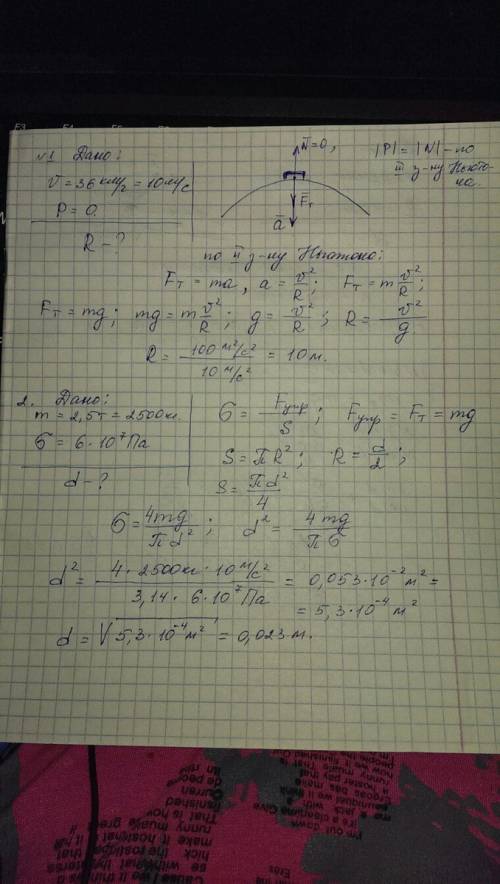 №1 Дано:
v = 36 км/ч = 10 м/с
P = 0.
R - ?
N̄ = 0,
F̄т
ā
|P̄| = |N̄| - по
III з-ну Ньюто-
на.
по II з-ну Ньютона:
Fт = ma, a = v²/R; Fт = m v²/R;
Fт = mg; mg = m v²/R; g = v²/R; R = v²/g
R = 100 м²/с² / 10 м/с² = 10 м.
2. Дано:
m = 2,5т = 2500кг.
σ = 6·10⁷ Па
d - ?
σ = Fупр/S; Fупр = Fт = mg
S = πR²; R = d/2;
S = πd²/4
σ = 4mg/πd²; d² = 4mg/πσ
d² = 4·2500кг·10 м/с² / 3,14·6·10⁷Па = 0,053·10⁻² м² =
= 5,3·10⁻⁴ м²
d = √5,3·10⁻⁴ м² = 0,023 м.